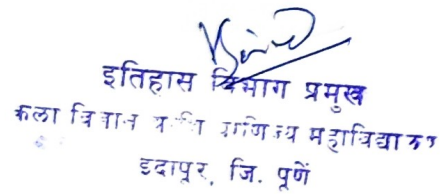 इतिहास विभाग प्रमुख
कला विज्ञान वाणिज्य महाविद्यालय
इदापूर, जि. पूणें